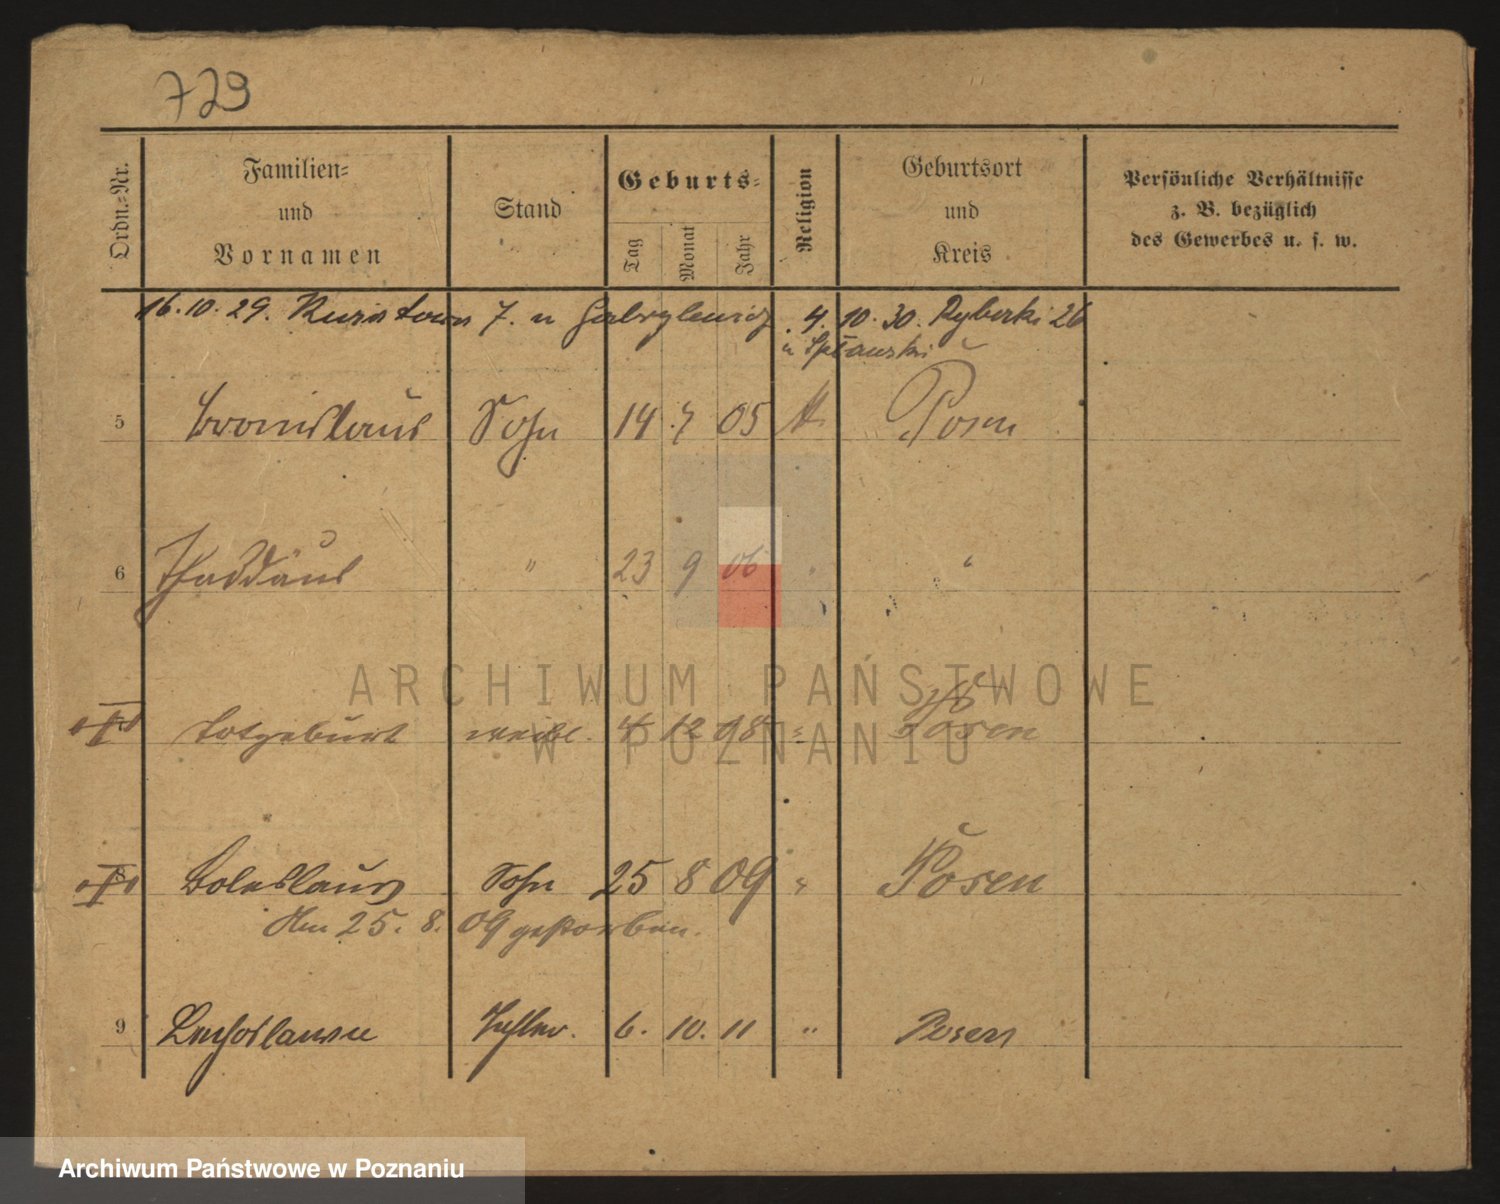 729
Ordn.-Nr.
Familien-
und
Vornamen
Stand
Geburts-
Tag
Monat
Jahr
Religion
Geburtsort
und
Kreis
Persönliche Verhältnisse
z. B. bezüglich
des Gewerbes u. s. w.
16.10.29. 7. u 4.10.30. Ryberki 26
u
5 Bronislaus Sohn 14 7 05 k. Posen
6 Thaddäus " 23 9 06 " "
Totgeburt weibl. 4 12 08 " Posen
Boleslaus Sohn 25 8 09 " Posen
Am 25. 8. 09 gestorben.
9 Tochter. 6. 10. 11 " Posen
ARCHIWUM PAŃSTWOWE
W POZNANIU
Archiwum Państwowe w Poznaniu